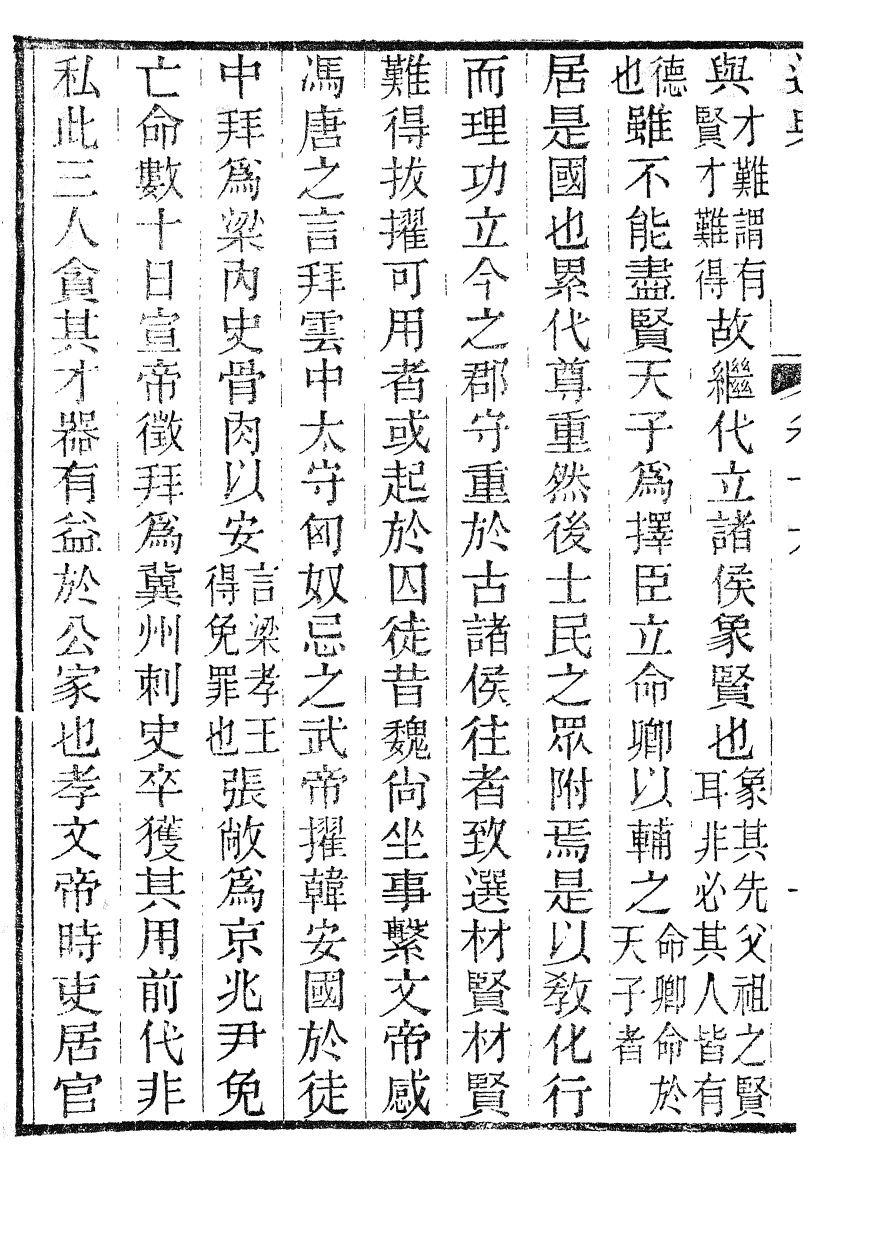 與才難謂有賢才難得故繼代立諸侯象賢也象其先父祖之賢耳非必其人皆有
德也雖不能盡賢天子爲擇臣立命卿以輔之命卿命於天子者
居是國也累代尊重然後士民之眾附焉是以敎化行
而理功立今之郡守重於古諸侯往者致選材賢材賢
難得拔擢可用者或起於囚徒昔魏尙坐事繫文帝感
馮唐之言拜雲中太守匈奴忌之武帝擢韓安國於徒
中拜爲梁內史骨肉以安言梁孝王得免罪也張敞爲京兆尹免
亡命數十日宣帝徵拜爲冀州刺史卒獲其用前代非
私此三人貪其才器有益於公家也孝文帝時吏居官